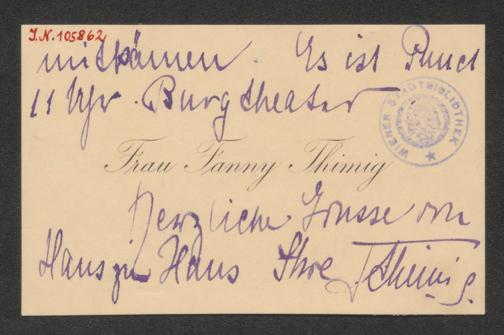 J.N. 105862
mitkämen. Es ist Punct
11 Uhr. Burgtheater
WIENER STADTBIBLIOTHEK
Frau Fanny Thimig
Herzliche Grüsse von
Haus zu Haus Ihre F. Thimig.